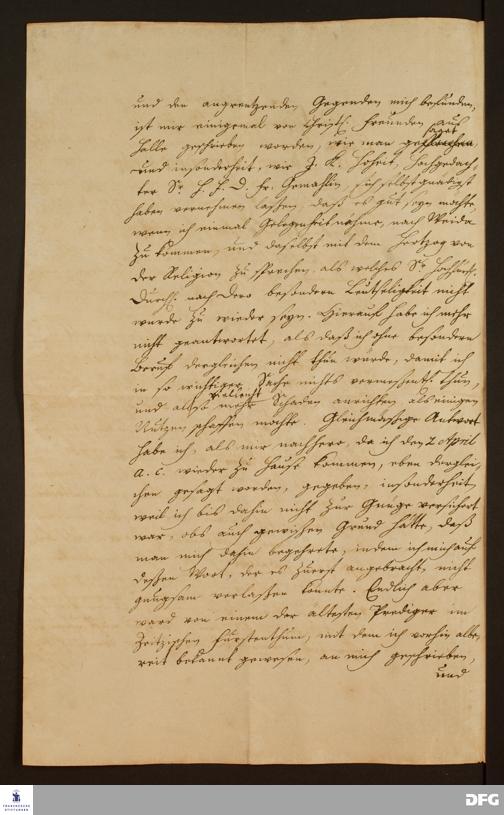 und den angrentzenden Gegenden mich befunden,
ist mir einigemal von Christl. Freunden aus
Halle geschrieben worden, wie man gesaget
und insonderheit, wie J. K. Hoheit, Hochgedach-
ter Sr. H. F. D. Fr. Gemahlin, sich selbst gnädigst
haben vernehmen lassen, daß es gut seyn möchte
wenn ich einmal Gelegenheit nähme, nach Weida
zu kommen, und daselbst mit dem Hertzog von
der Religion zu sprechen, als welches Sr. Hochfürstl.
Durchl. nach Dero besondern Leutseligkeit nicht
würde zu wieder seyn. Hierauf habe ich mehr
nicht geantwortet, als daß ich ohne besondern
Beruf dergleichen nicht thun würde, damit ich
in so wichtiger Sache nichts vermessentl. thun,
und also vielleicht mehr Schaden anrichten als einigen
Nutzen schaffen möchte. Gleichmässige Antwort
habe ich, als mir nachhero, da ich den 2 April
a. c. wieder zu Hause kommen, eben derglei-
chen gesagt worden, gegeben, insonderheit,
weil ich bis dahin nicht zur Gnüge versichert
war, obs auch gewissen Grund hätte, daß
man mich dahin begehrete, indem ich mich auf
dessen Wort, der es zuerst angebracht, nicht
gnugsam verlassen konnte. Endlich aber
ward von einem der ältesten Prediger im
Zeitzischen Fürstenthum, mit dem ich vorhin albe-
reit bekannt gewesen, an mich geschrieben,
und
FRANCKESCHE STIFTUNGEN
DFG